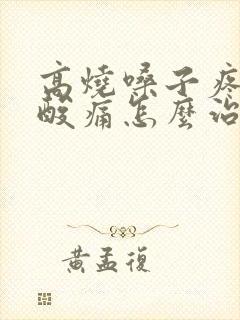 高燒嗓子疼
酸痛怎麼治
黃孟復